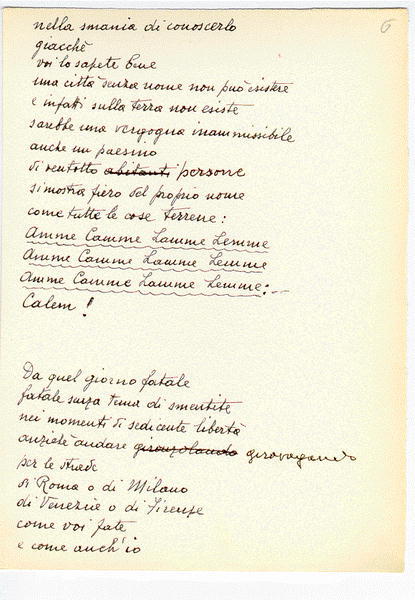 6
nella smania di conoscerlo
giacchè
voi lo sapete bene
una città senza nome non può esistere
e infatti sulla terra non esiste
sarebbe una vergogna inammissibile
anche un paesino
di ventotto abitanti persone
si mostra fiero del proprio nome
come tutte le cose terrene:
Amme Camme Lamme Lemme
Amme Camme Lamme Lemme
Amme Camme Lamme Lemme:
Calem!
Da quel giorno fatale
fatale senza tema di smentite
nei momenti di sedicente libertà
anziché andare gironzolando girovagando
per le strade
di Roma o di Milano
di Venezia o di Firenze
come voi fate
e come anch'io